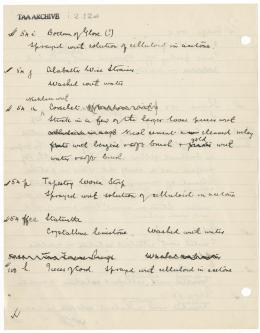 TAA ARCHIVE i. 2.12.0
54 i Bottom of Glove (?)
Sprayed wit solution of celluloid in acetone
54 j Alabaster Wine Strainer
Washed wit water
54 Corselet
Stuck in a few of the larger loose pieces wit
Neal cement cleaned inlay
wit benzine + soft brush + gold wit
water + soft brush
54 p Tapestry Woven Strip
Sprayed wit solution of celluloid in acetone
Statuette
Crystalline limestone. Washed wit water
h. Pieces of Cord. Sprayed wit celluloid in acetone